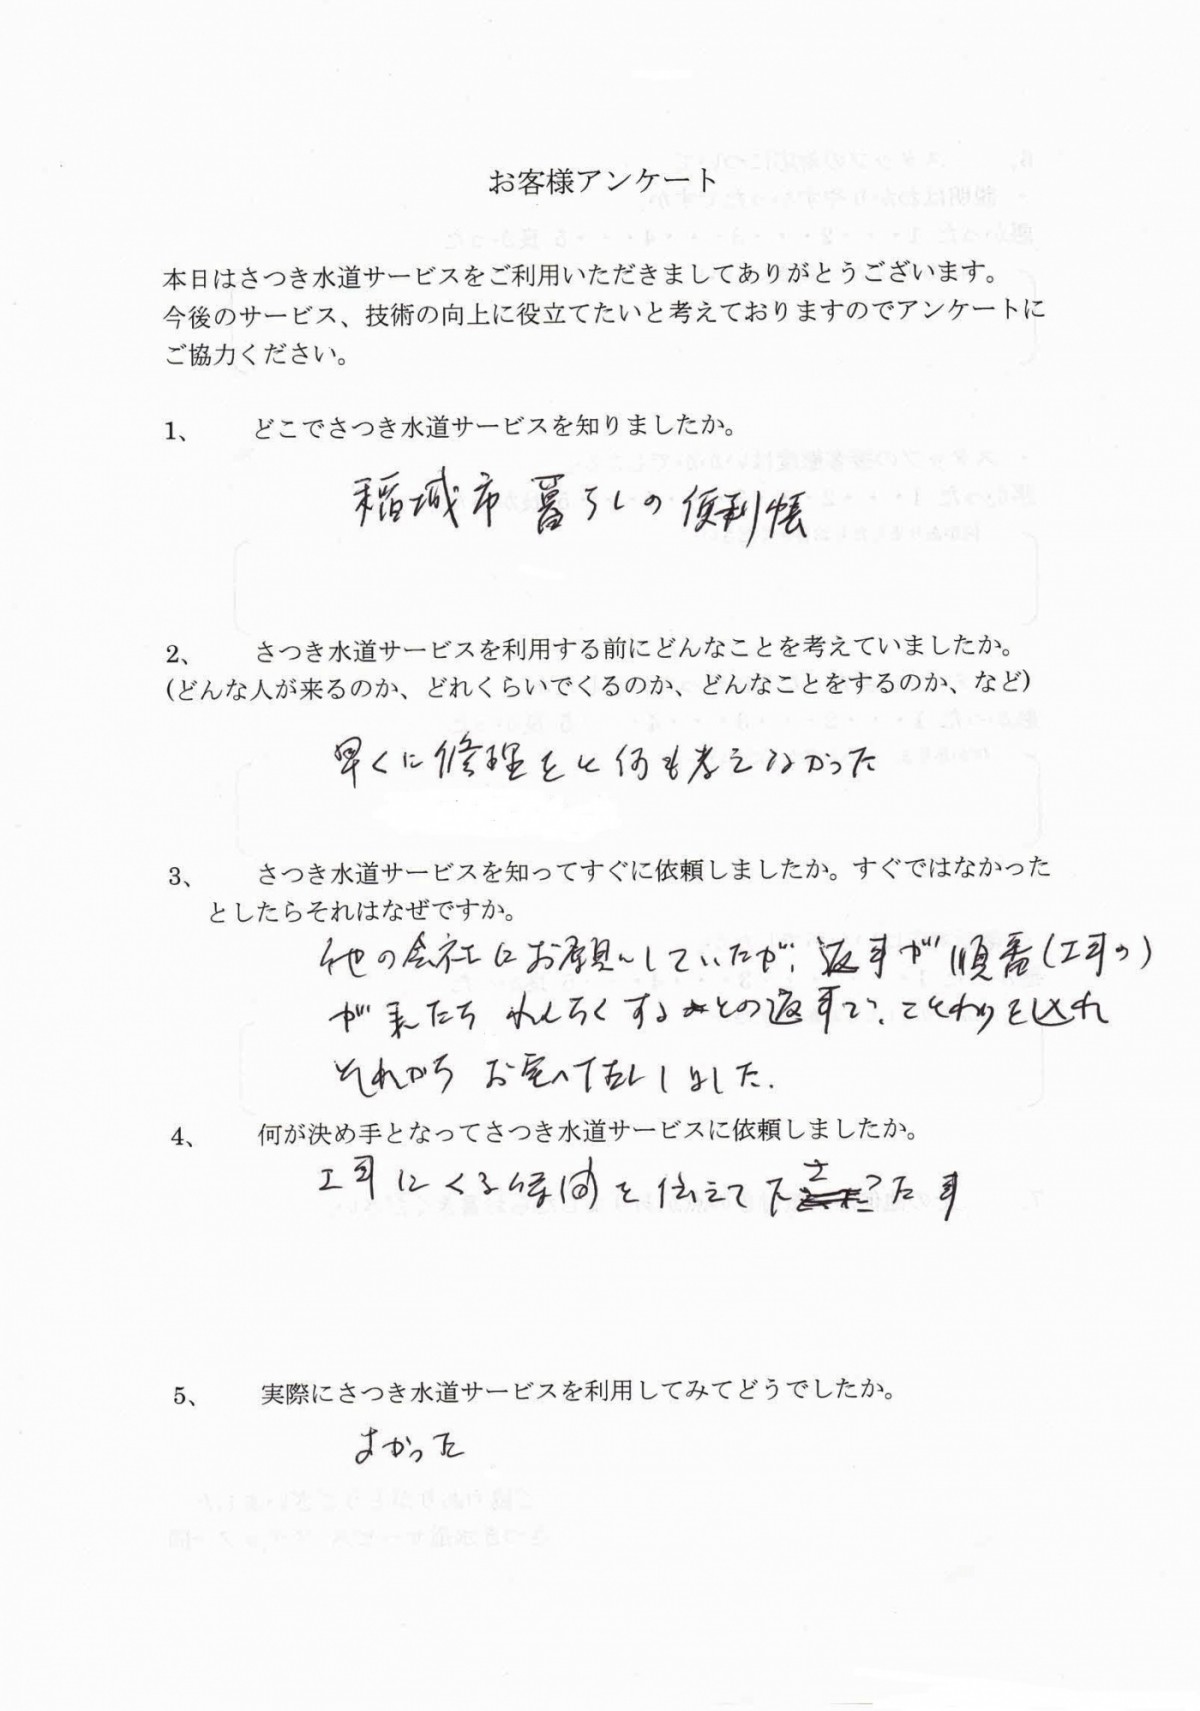 お客様アンケート
本日はさつき水道サービスをご利用いただきましてありがとうございます。
今後のサービス、技術の向上に役立てたいと考えておりますのでアンケートに
ご協力ください。
1、 どこでさつき水道サービスを知りましたか。
稲城市 暮らしの便利帳
2、 さつき水道サービスを利用する前にどんなことを考えていましたか。
(どんな人が来るのか、どれくらいでくるのか、どんなことをするのか、など)
早くに修理をと何も考えなかった
3、 さつき水道サービスを知ってすぐに依頼しましたか。すぐではなかった
としたらそれはなぜですか。
他の会社にお願いしていたが、返事が順番(工事の)
が来たら れんらくするとの返事で、ことわりを入れ
それから お電話しました.
4、 何が決め手となってさつき水道サービスに依頼しましたか。
工事にくる時間を伝えて下さった事
5、 実際にさつき水道サービスを利用してみてどうでしたか。
よかった